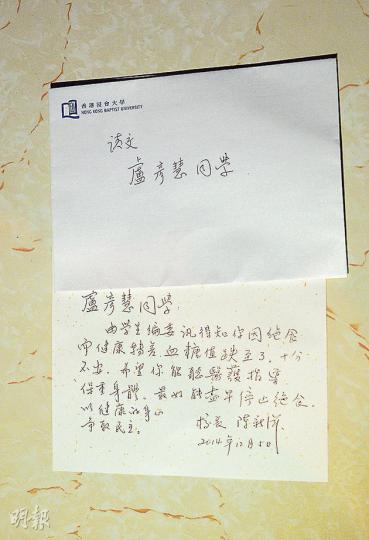 香港浸會大學
HONG KONG BAPTIST UNIVERSITY
請交
盧彥慧同學
盧彥慧同學
由學生編委訊得知你因絕食
中健康轉差血糖值跌至3,十分
不安。希望你能聽醫護指導
保重身體,最好能盡早停止絕食,
以健康的身心
爭取民主。
校長 陳新滋
2014年12月5日
明報